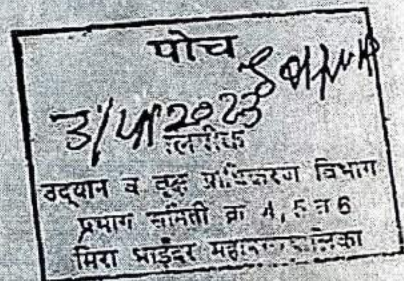 पोच
3/5/2023
लिपीक
उद्यान व वृक्ष प्राधिकरण विभाग
प्रभाग समिती क्र 4, 5 व 6
मिरा भाईंदर महानगरपालिका